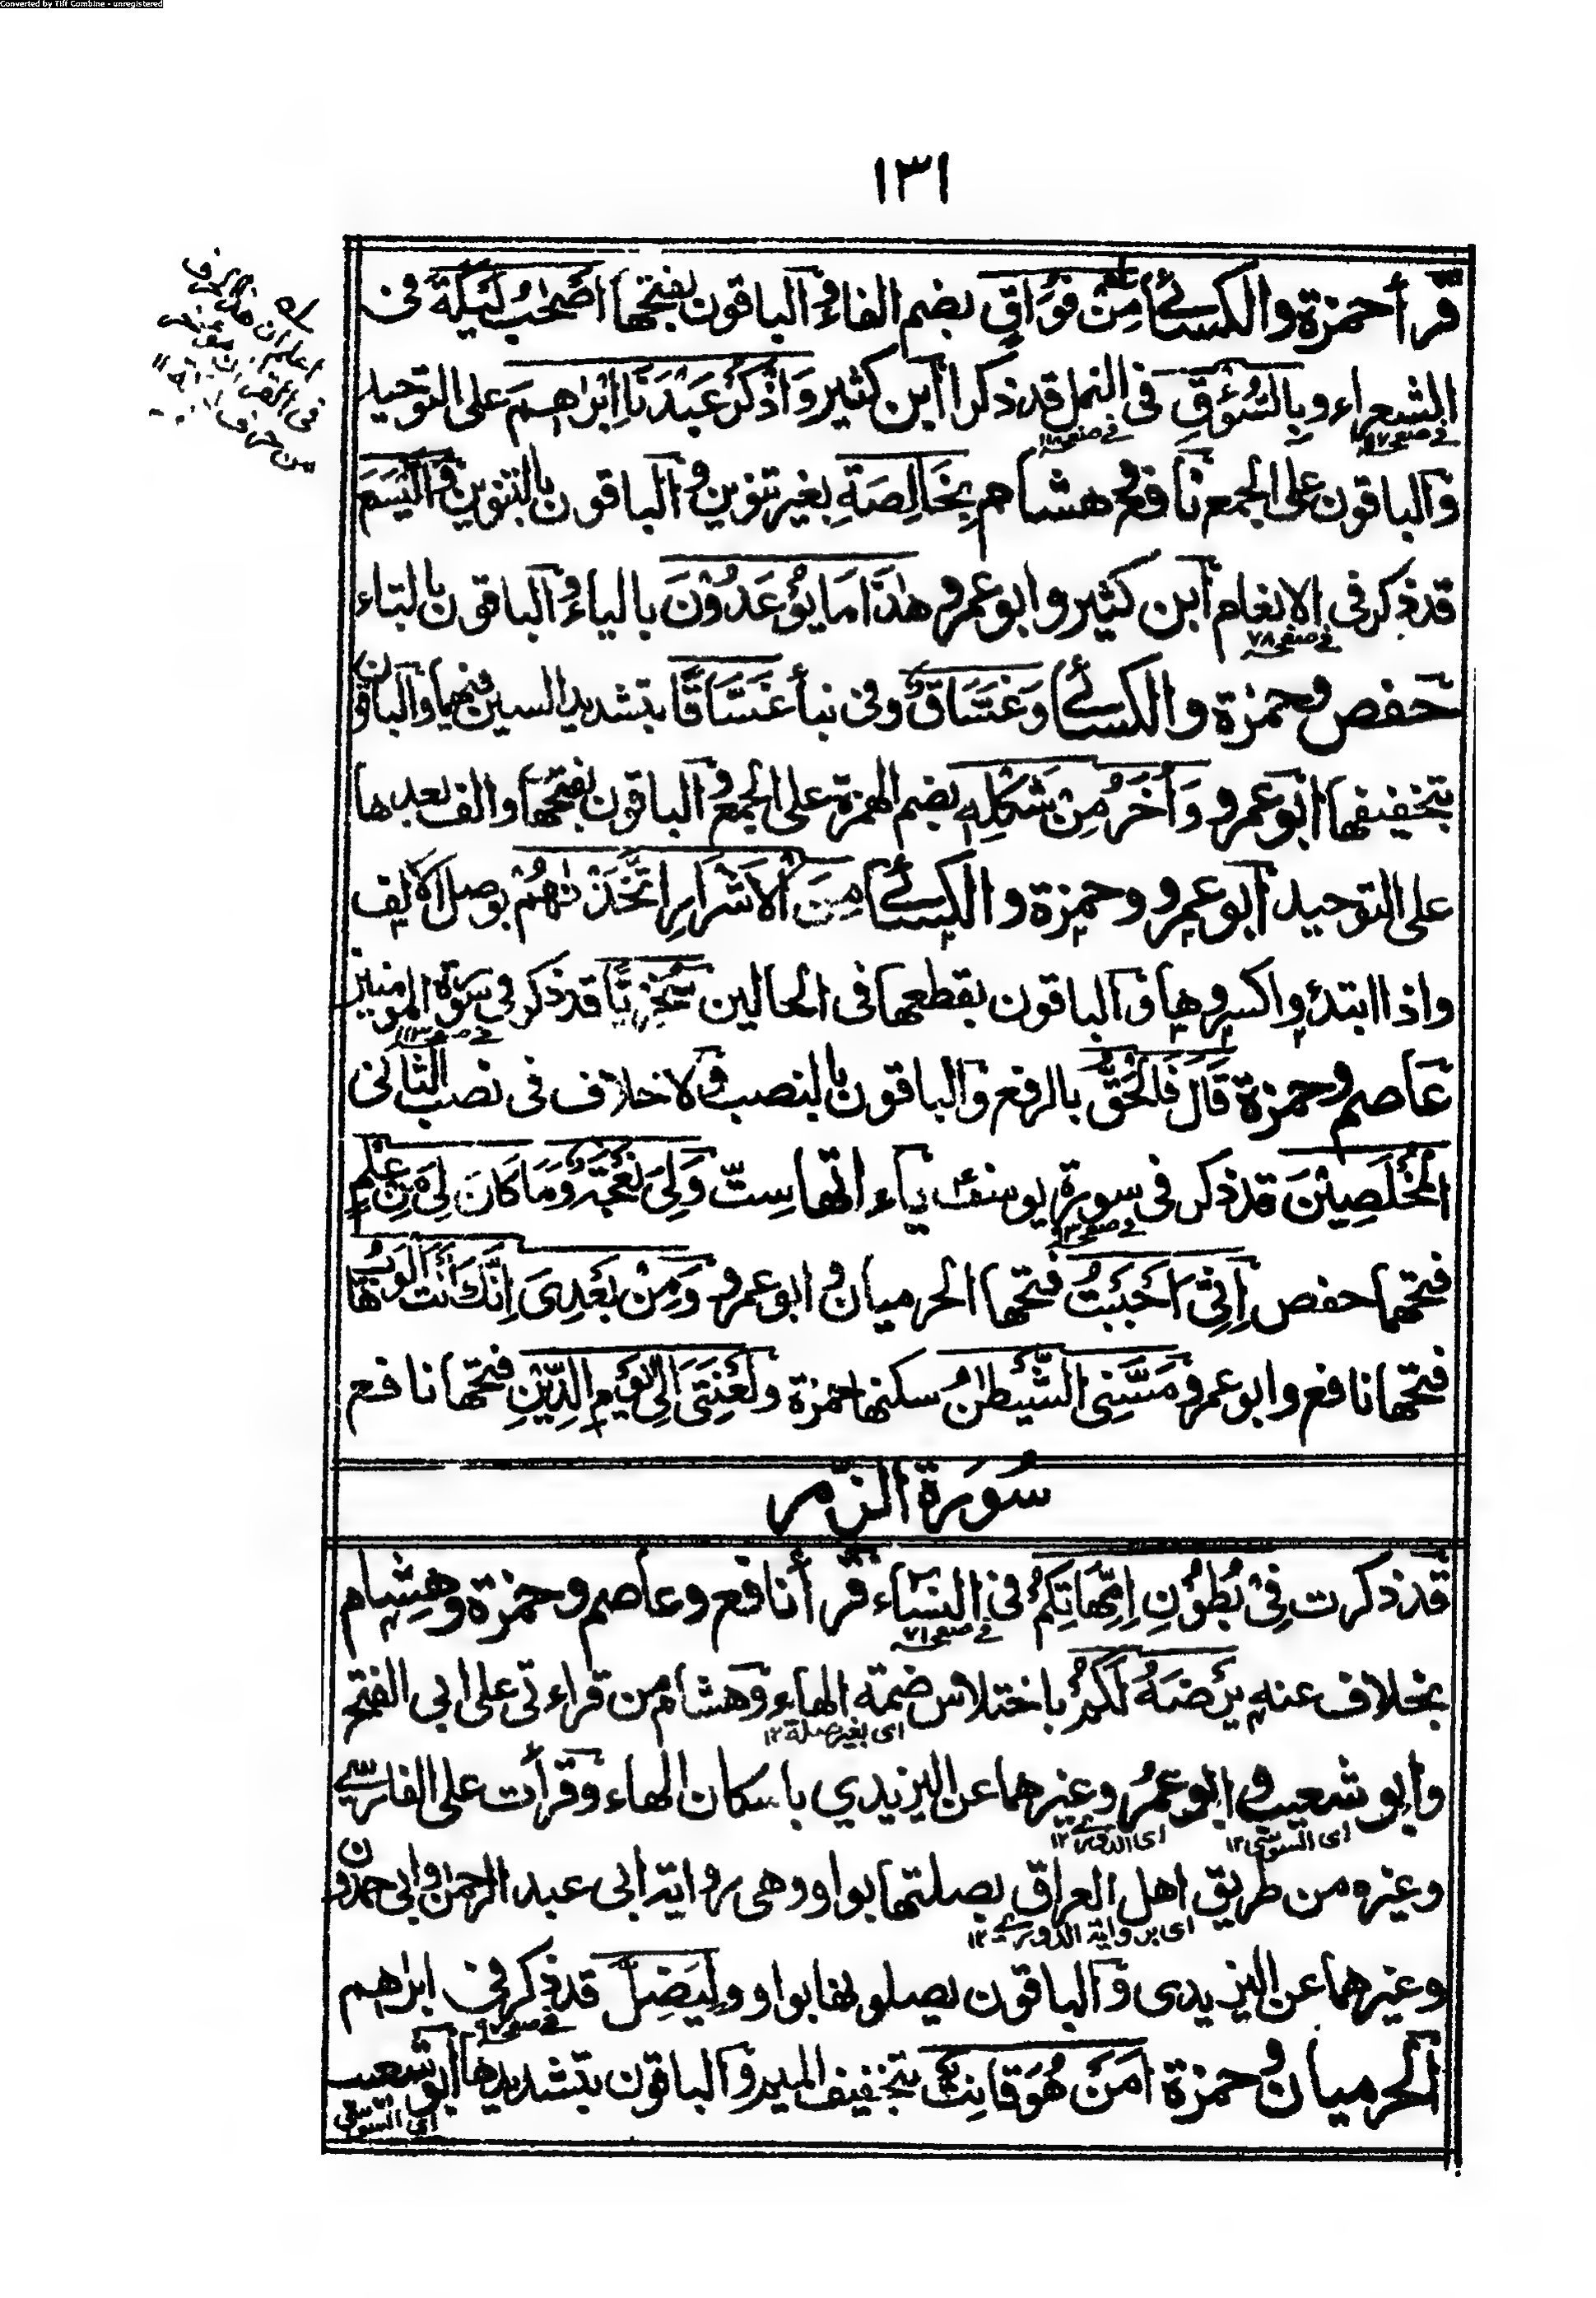 Converted by Tiff Combine - unregistered
١٣١
قرأ حمزة والكسائے مِنْ فُوَاقٍ بضم الفاء والباقون بفتحها اَصْحٰبُ لَيْكَةَ فى
الشعراء وبِالسُّؤْقِ فى النمل قد ذكرا ابن كثير وَاذْكُرْ عَبْدَنَا اِبْرٰهِيْمَ على التوحيد
فے صفحہ
فے صفحہ
والباقون على الجمع نافع وهشام بِخَالِصَةِ بغير تنوين والباقون بالتنوين وَالْيَسَعَ
قد ذكر فى الانعام ابن كثير وابو عمرو هٰذَا مَا يُوْعَدُوْنَ بالياء والباقون بالتاء
فے صفحہ ٧٨
حفص وحمزة والكسائے وَغَسَّاقٌ وفى نبأ غَسَّاقًا بتشديد السين فيهما والباقون
بتخفيفها ابو عمرو وَاُخَرُ مِنْ شَكْلِهٖ بضم الهمزة على الجمع والباقون بفتحها والف بعدها
على التوحيد ابو عمرو وحمزة والكسائے مِنَ الْاَشْرَارِ اتَّخَذْنٰهُمْ بوصل الالف
واذا ابتدؤا كسروها والباقون بقطعها فى الحالين سُخْرِيًّا قد ذكر فى سورة المؤمنين
عاصم وحمزة قَالَ فَالْحَقُّ بالرفع والباقون بالنصب ولا خلاف فى نصب الثانى
الْمُخْلَصِيْنَ قد ذكر فى سورة يوسف ياءاتها ستّ وَلِىَ نَعْجَةٌ وَمَا كَانَ لِىَ مِنْ عِلْمٍ
فتحهما حفص اِنِّىْ اَحْبَبْتُ فتحها الحرميان وابو عمرو وَمِنْ بَعْدِىَ اِنَّكَ اَنْتَ الْوَهَّابُ
فتحها نافع وابو عمرو مَسَّنِىَ الشَّيْطٰنُ سكنها حمزة ولَعْنَتِىَ اِلٰى يَوْمِ الدِّيْنِ فتحها نافع
سُورَة الزمر
قد ذكرت فِىْ بُطُوْنِ اِمَّهَاتِكُمْ فى النساء قرأ نافع وعاصم وحمزة وهشام
فے صفحہ ٧١
بخلاف عنه يَرْضَهُ لَكُمْ باختلاس ضمة الهاء وهشام من قراءتى على ابى الفتح
اى بغير صلة ١٢
وابو شعيب وابو عمر وغيرهما عن اليزيدي باسكان الهاء وقرأت على الفارسے
اى السوسى ١٢
اى الدورے ١٢
وغيره من طريق اهل العراق بصلتها بواو وهى رواية ابى عبد الرحمن وابى حمدون
اى برواية الدورے ١٢
وغيرهما عن اليزيدى والباقون يصلونها بواو ولِيَضِلَّ قد ذكر فى ابراهيم
فے صفحہ
الحرميان وحمزة اَمَنْ هُوَ قَانِتٌ بتخفيف الميم والباقون بتشديدها ابو شعيب
اى السوسى